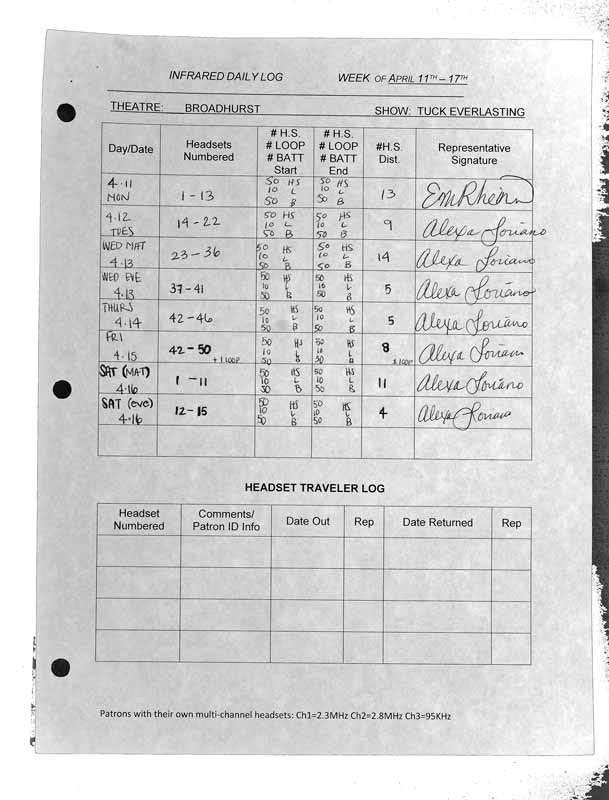 INFRARED DAILY LOG WEEK OF APRIL 11TH – 17TH
THEATRE: BROADHURST SHOW: TUCK EVERLASTING
Day/Date Headsets Numbered # H.S. # LOOP # BATT Start # H.S. # LOOP # BATT End #H.S. Dist. Representative Signature
4.11 MON 1-13 50 HS 10 L 50 B 50 HS 10 L 50 B 13 EmRhein
4.12 TUES 14-22 50 HS 10 L 50 B 50 HS 10 L 50 B 9 Alexa Soriano
WED MAT 4.13 23-36 50 HS 10 L 50 B 50 HS 10 L 50 B 14 Alexa Soriano
WED EVE 4.13 37-41 50 HS 10 L 50 B 50 HS 10 L 50 B 5 Alexa Soriano
THURS 4.14 42-46 50 HS 10 L 50 B 50 HS 10 L 50 B 5 Alexa Soriano
FRI 4.15 42-50 +1 LOOP 50 HS 10 L 50 B 50 HS 10 L 50 B 8 1 LOOP Alexa Soriano
SAT (MAT) 4.16 1-11 50 HS 10 L 50 B 50 HS 10 L 50 B 11 Alexa Soriano
SAT (eve) 4.16 12-15 50 HS 10 L 50 B 50 HS 10 L 50 B 4 Alexa Soriano
HEADSET TRAVELER LOG
Headset Numbered Comments/ Patron ID Info Date Out Rep Date Returned Rep
Patrons with their own multi-channel headsets: Ch1=2.3MHz Ch2=2.8MHz Ch3=95KHz